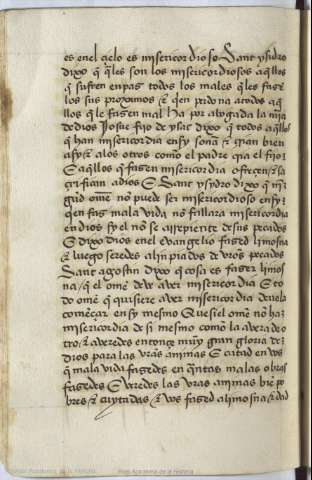 es enel çielo es misericordioso. Sant ysidro
dixo q̄ q̄les son los misericordiosos aq̄llos
q̄ sufren en paz todos los males q̄ les fazē
los sus proximos & q̄ en perdona a todos aq̄
llos q̄ le fazen mal ha por abogada la mīa
de dios Josue fijo de ysac dixo q̄ todos aq̄llos
q̄ han misericordia en sy son a & gran bien
asy & alos otros como el padre q̄ a el fijo
E aq̄llos q̄ fazen misericordia ofreçen & sa
crifican a dios E Sant ysydro dixo q̄ nī
gūd ome no puede ser misericordioso en sy
q̄en faz mala vida no fallara misericordia
en dios sy el no se arrepiente de sus pecados
E dixo dios en el Euangelio fazed limosna
& luego seredes alinpiados de vr̄os pecados
Sant agostin dixo q̄ cosa es fazer limos
na / q̄ el ome deue aver misericordia E to
do ome q̄ quisiere aver misericordia deuela
començar en sy mesmo Que si el ome no ha
misericordia de si mesmo como la avera de o
tro, & averedes entonçe muy gran gloria de
dios para las vr̄as animas E catad en vos
q̄ mala vida fazedes en q̄ntas malas obras
fazedes E veredes las vr̄as animas biē po
bres & cuytadas & vos fazed alimosna & dad
Real Academia de la Historia
Real Academia de la Historia